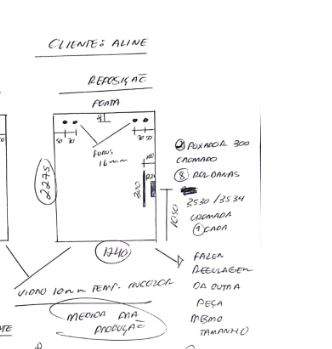 CLIENTE: ALINE
REPOSIÇÃO
PORTA
50 50
FUROS
16mm
2275
300
1050
1240
PUXADOR 300
CROMADO
8 ROLDANAS
3530 / 3534
CROMADA
1 CADA
FAZER
REGULAGEM
DA OUTRA
PEÇA
MESMO
TAMANHO
VIDRO 10mm TEMP. INCOLOR
MEDIDA PRA
PRODUÇÃO